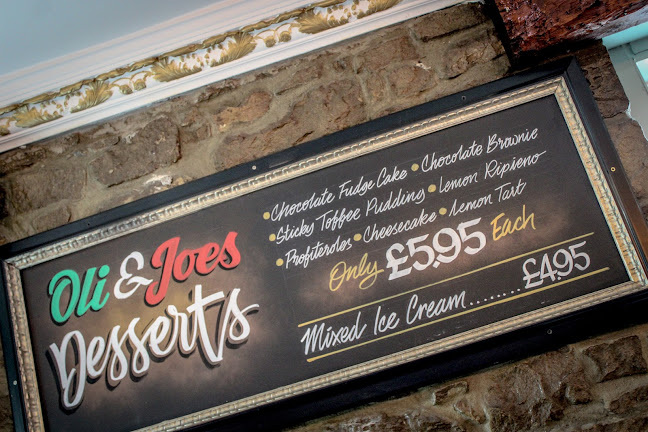 Oli & Joes
Desserts
• Chocolate Fudge Cake • Chocolate Brownie
• Sticky Toffee Pudding • Lemon Ripieno
• Profiteroles • Cheesecake • Lemon Tart
Only £5.95 Each
Mixed Ice Cream........£4.95